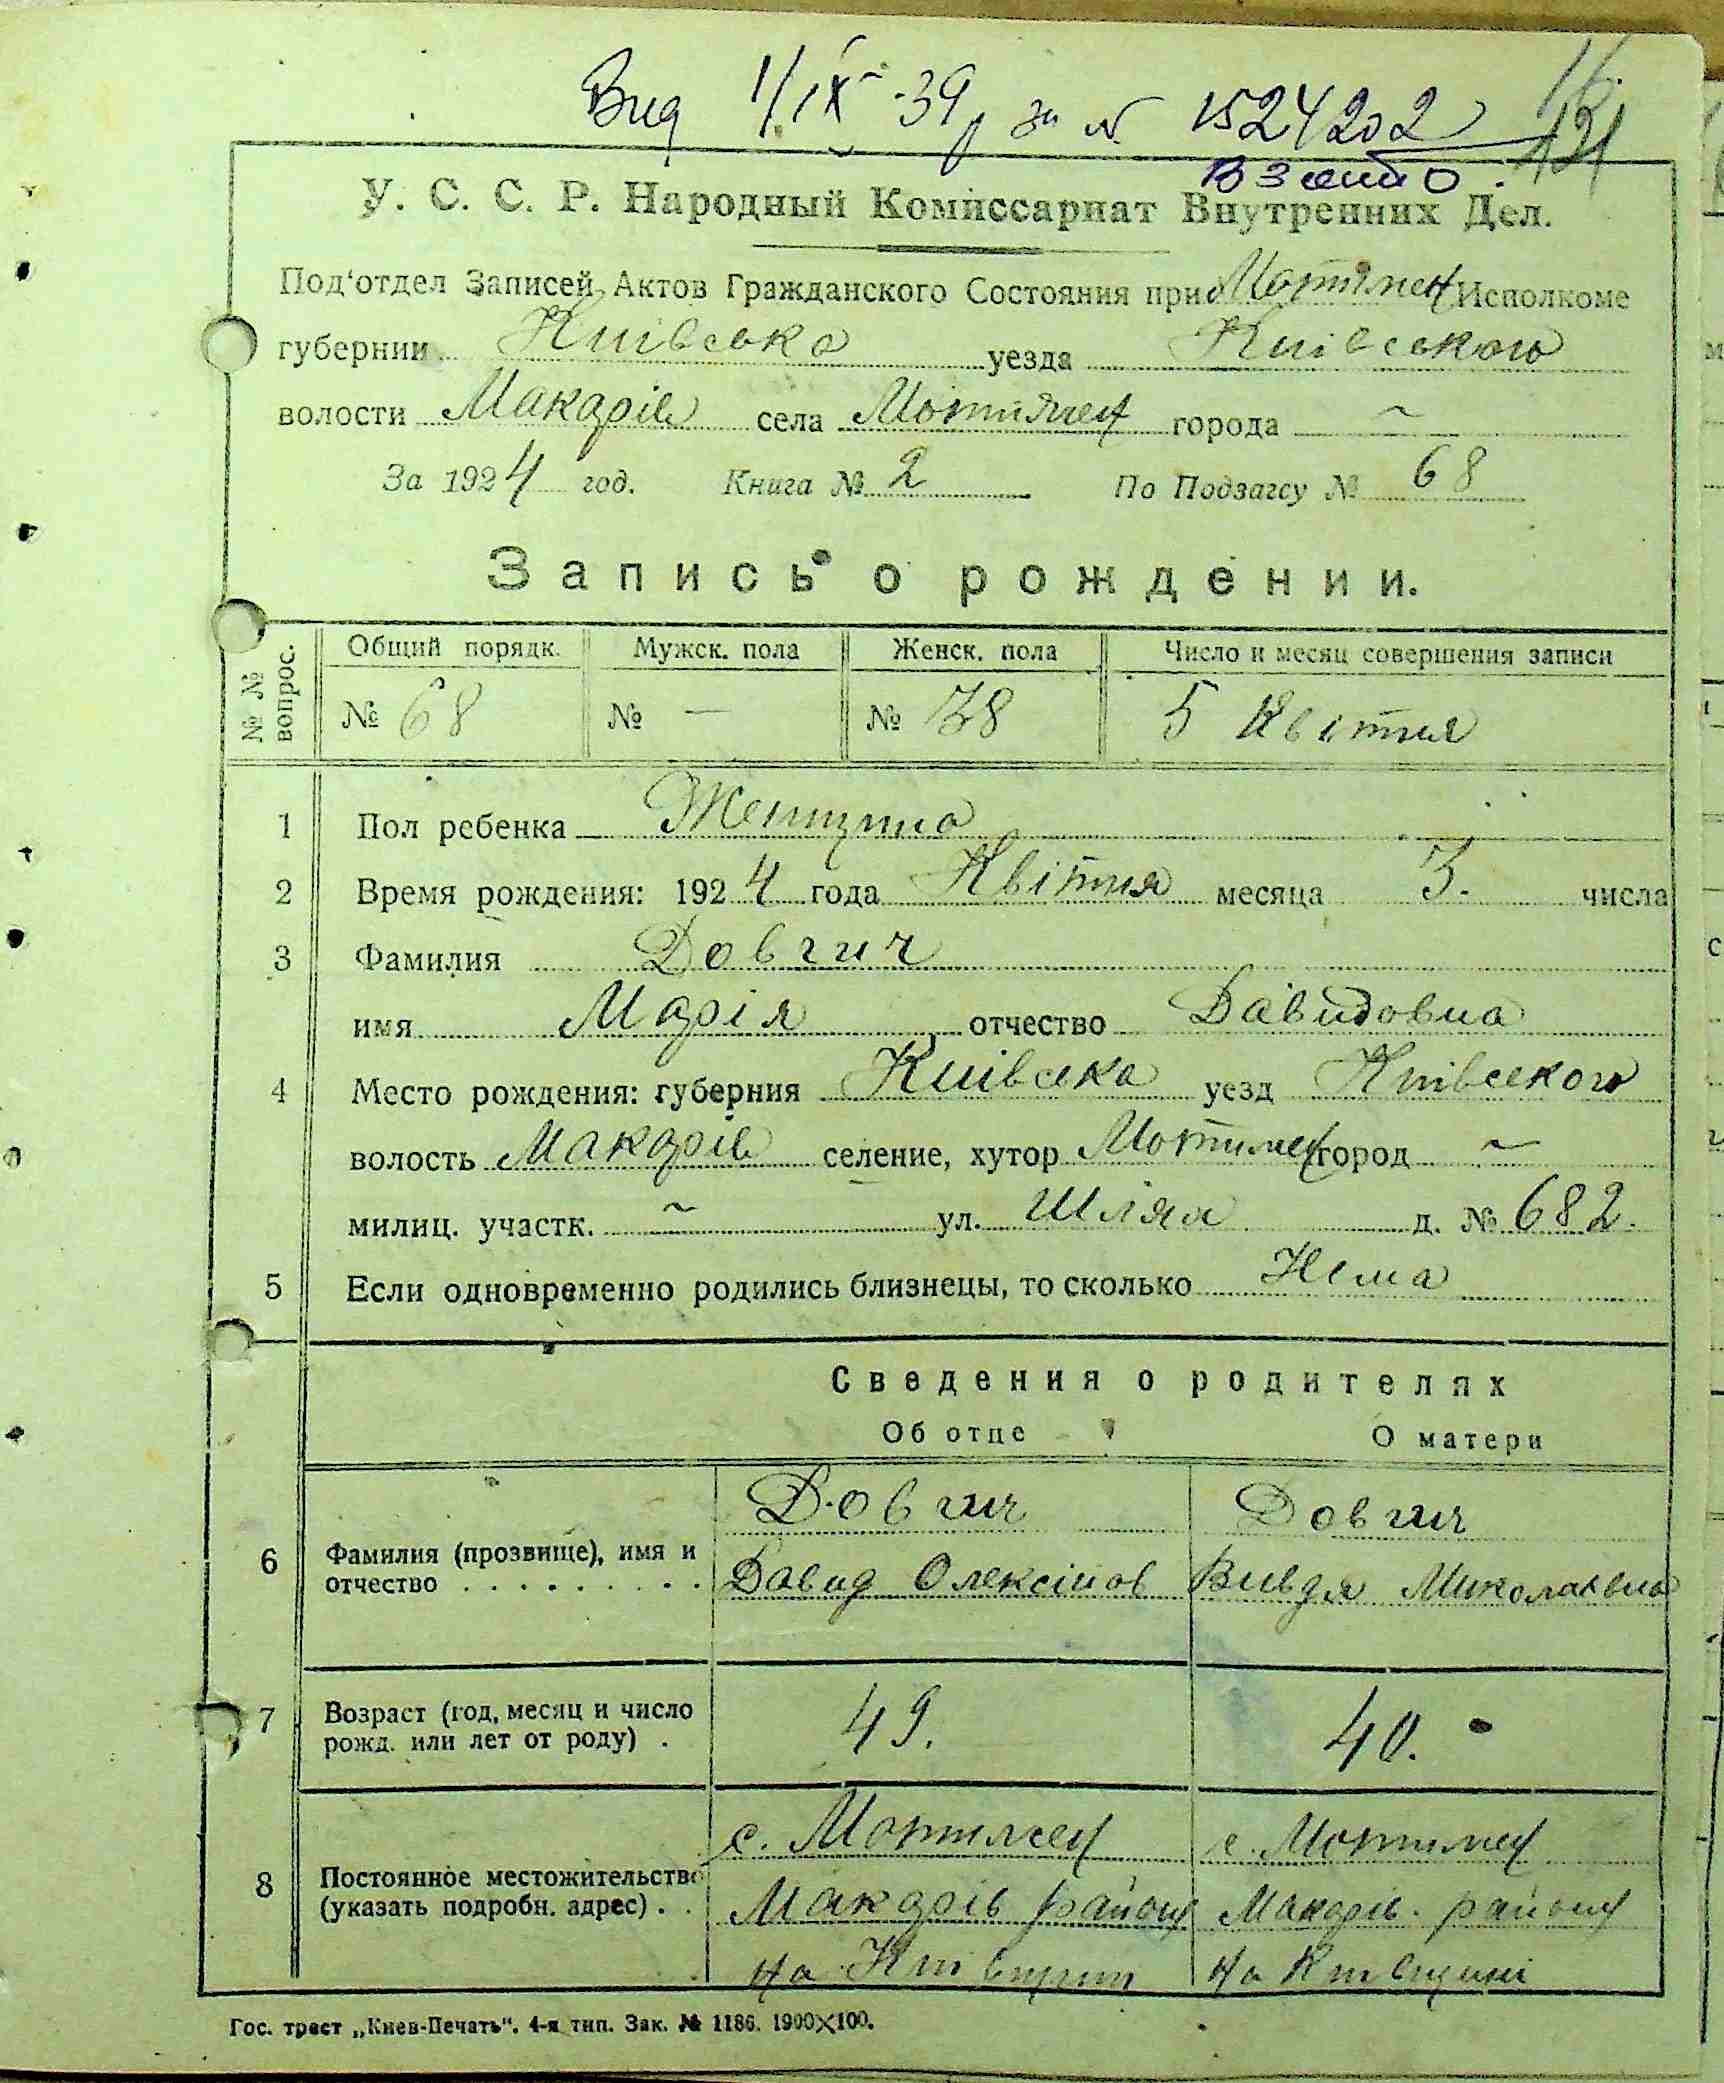 Вид 1/IX-39 р за № 1524202
131
У. С. С. Р. Народный Комиссариат Внутренних Дел.
Под'отдел Записей Актов Гражданского Состояния при Мотижен Исполкоме
губернии Київська уезда Київського
волости Макарів села Мотижен города ~
За 1924 год. Книга № 2 По Подзагсу № 68
Запись о рождении.
№ № вопрос. Общий порядк. Мужск. пола Женск. пола Число и месяц совершения записи
№ 68 № — № 38 5 Квітня
1 Пол ребенка Женщина
2 Время рождения: 1924 года Квітня месяца 3. числа
3 Фамилия Довгич
имя Марія отчество Давидовна
4 Место рождения: губерния Київська уезд Київського
волость Макарів селение, хутор Мотижен город ~
милиц. участк. ~ ул. Шлях д. № 682.
5 Если одновременно родились близнецы, то сколько Нема
Сведения о родителях
Об отце О матери
Довгич Довгич
6 Фамилия (прозвище), имя и отчество . . . . . . . . . Давид Олексійов Вивдя Миколаевна
7 Возраст (год, месяц и число рожд. или лет от роду) . 49. 40.
с. Мотижен с. Мотижен
8 Постоянное местожительство (указать подробн. адрес) . . Макарів району Макарів. району
на Київщині на Київщині
Гос. трест „Киев-Печать". 4-я тип. Зак. № 1186. 1900×100.